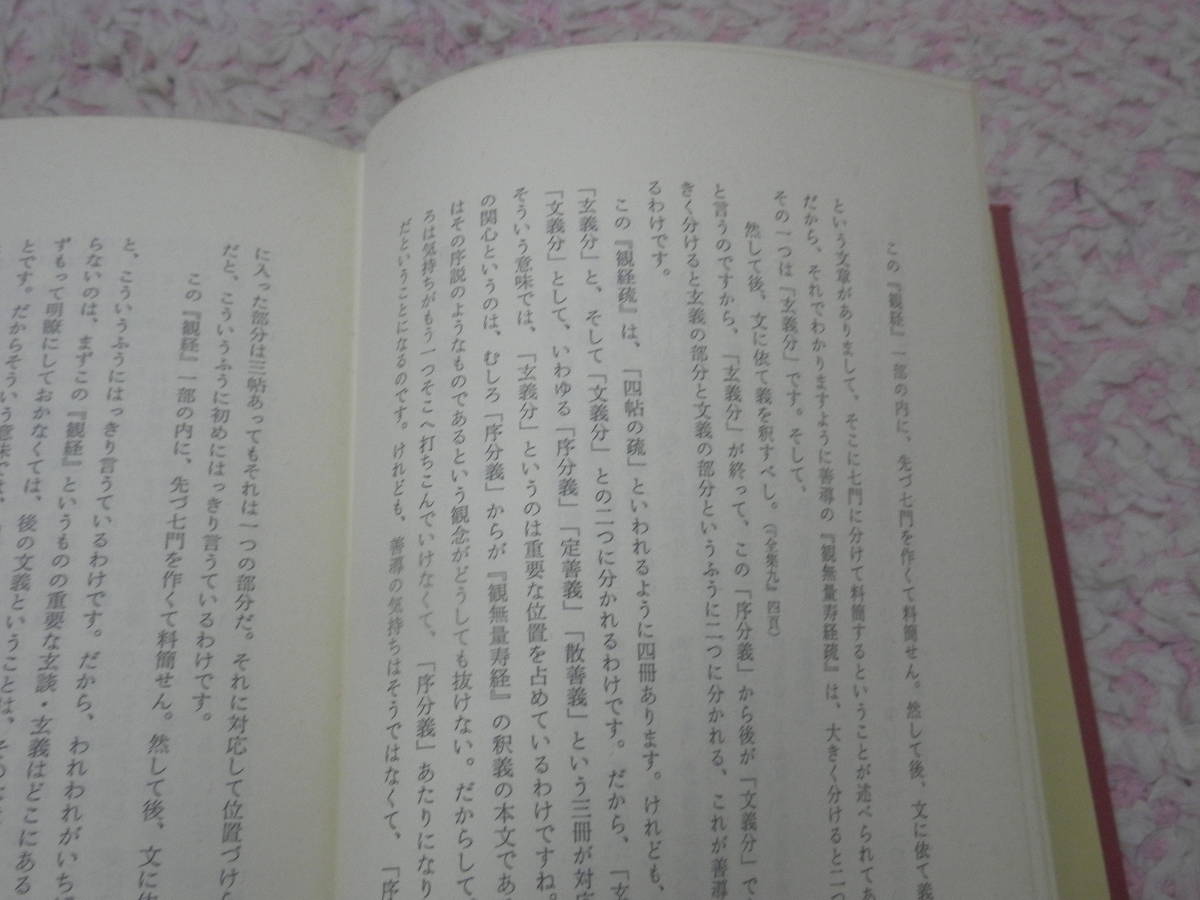 この『観経』一部の内に、先づ七門を作くて料簡せん。然して後、文に依て義
という文章がありまして、そこに七門に分けて料簡するということが述べられてあ
だから、それでわかりますように善導の『観無量寿経疏』は、大きく分けると二つ
その一つは「玄義分」です。そして、
然して後、文に依て義を釈すべし。(『全集九』四頁)
と言うのですから、「玄義分」が終って、この「序分義」から後が「文義分」で
きく分けると玄義の部分と文義の部分というふうに二つに分かれる、これが善導
るわけです。
この『観経疏』は、「四帖の疏」といわれるように四冊あります。けれども、
「玄義分」と、そして「文義分」との二つに分かれるわけです。だから、「玄
「文義分」として、いわゆる「序分義」「定善義」「散善義」という三冊が対応
そういう意味では、「玄義分」というのは重要な位置を占めているわけですね。
の関心というのは、むしろ「序分義」からが『観無量寿経』の釈義の本文であ
はその序説のようなものであるという観念がどうしても抜けない。だからして、
ろは気持ちがもう一つそこへ打ちこんでいけなくて、「序分義」あたりになり
だということになるのです。けれども、善導の気持ちはそうではなくて、「序
に入った部分は三帖あってもそれは一つの部分だ。それに対応して位置づけら
だと、こういうふうに初めにはっきり言うているわけです。
この『観経』一部の内に、先づ七門を作くて料簡せん。然して後、文に依
と、こういうふうにはっきり言うているわけです。だから、われわれがいち
らないのは、まずこの『観経』というものの重要な玄談・玄義はどこにある
ずもって明瞭にしておかなくては、後の文義ということは、その
とです。だからそういう意味では、